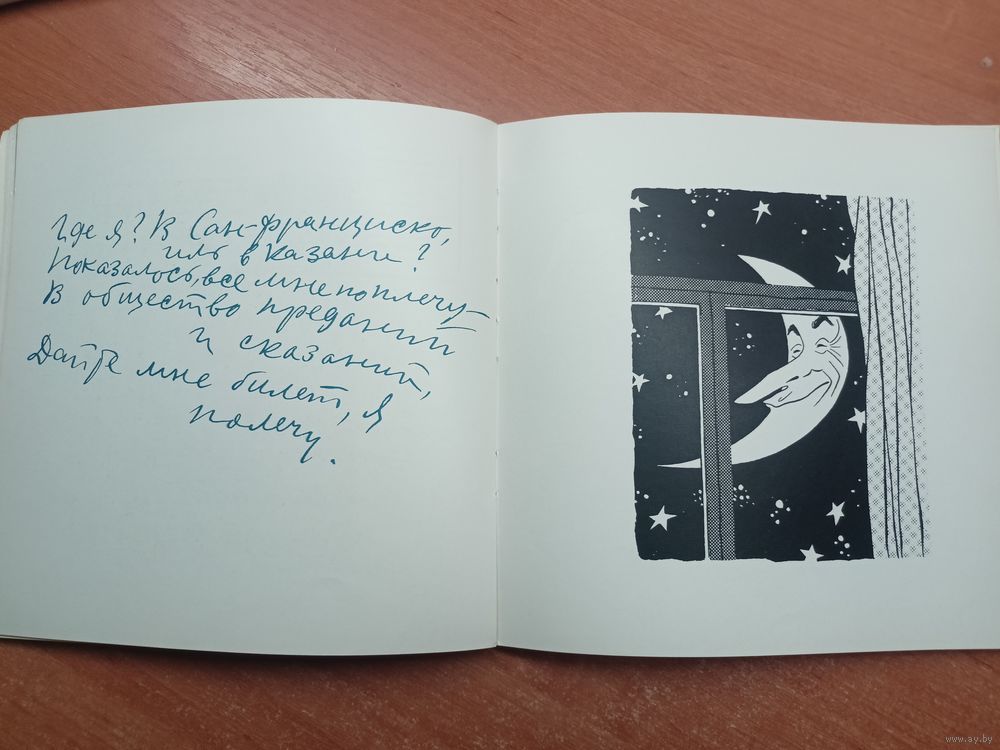 Где я? В Сан-Франциско,
иль в Казани?
Показалось, все мне по плечу –
В общество преданий
и сказаний,
Дайте мне билет, я
полечу.
www.ay.by